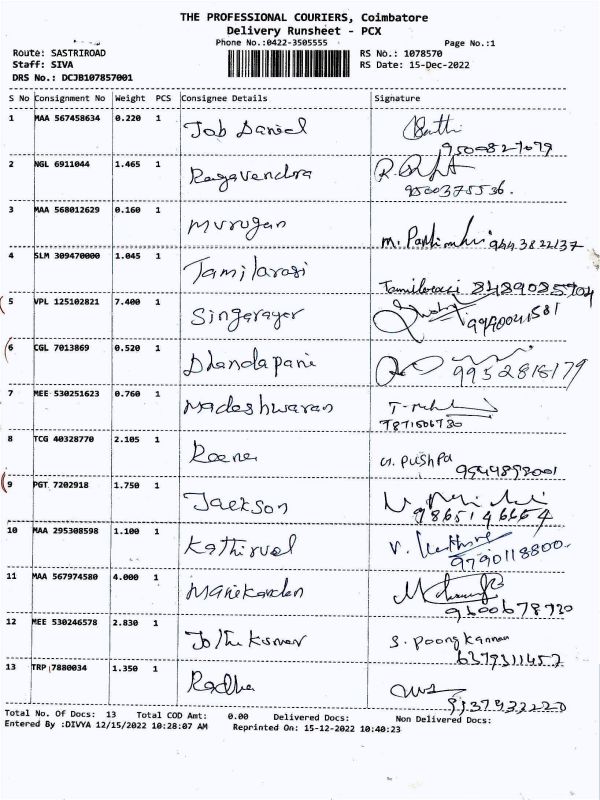 THE PROFESSIONAL COURIERS, Coimbatore
Delivery Runsheet - PCX
Phone No.:0422-3505555 Page No.:1
Route: SASTRIROAD RS No.: 1078570
Staff: SIVA RS Date: 15-Dec-2022
DRS No.: DCJB107857001
S No Consignment No Weight PCS Consignee Details Signature
1 MAA 567458634 0.220 1 Job Daniel
9500827079
2 NGL 6911044 1.465 1 Ragavendra
9500375536.
3 MAA 568012629 0.160 1 Murugan
M.
4 SLM 309470000 1.045 1 Tamilarasi
Tamilarasi 8489085704
5 VPL 125102821 7.400 1 Singarayar
6 CGL 7013869 0.520 1 Dhandapani
9952818179
7 MEE 530251623 0.760 1 Madeshwaran
9871506730
8 TCG 40328770 2.105 1
G. Pushpa 9944898001
9 PGT 7202918 1.750 1 Jackson
9865146664
10 MAA 295308598 1.100 1 Kathirvel
V. 9790118800
11 MAA 567974580 4.000 1 Manikandan
9600678930
12 MEE 530246578 2.830 1
S. Poongkannan
6379311452
13 TRP 7880034 1.350 1 Radha
Total No. Of Docs: 13 Total COD Amt: 0.00 Delivered Docs: Non Delivered Docs:
Entered By :DIVYA 12/15/2022 10:28:07 AM Reprinted On: 15-12-2022 10:40:23